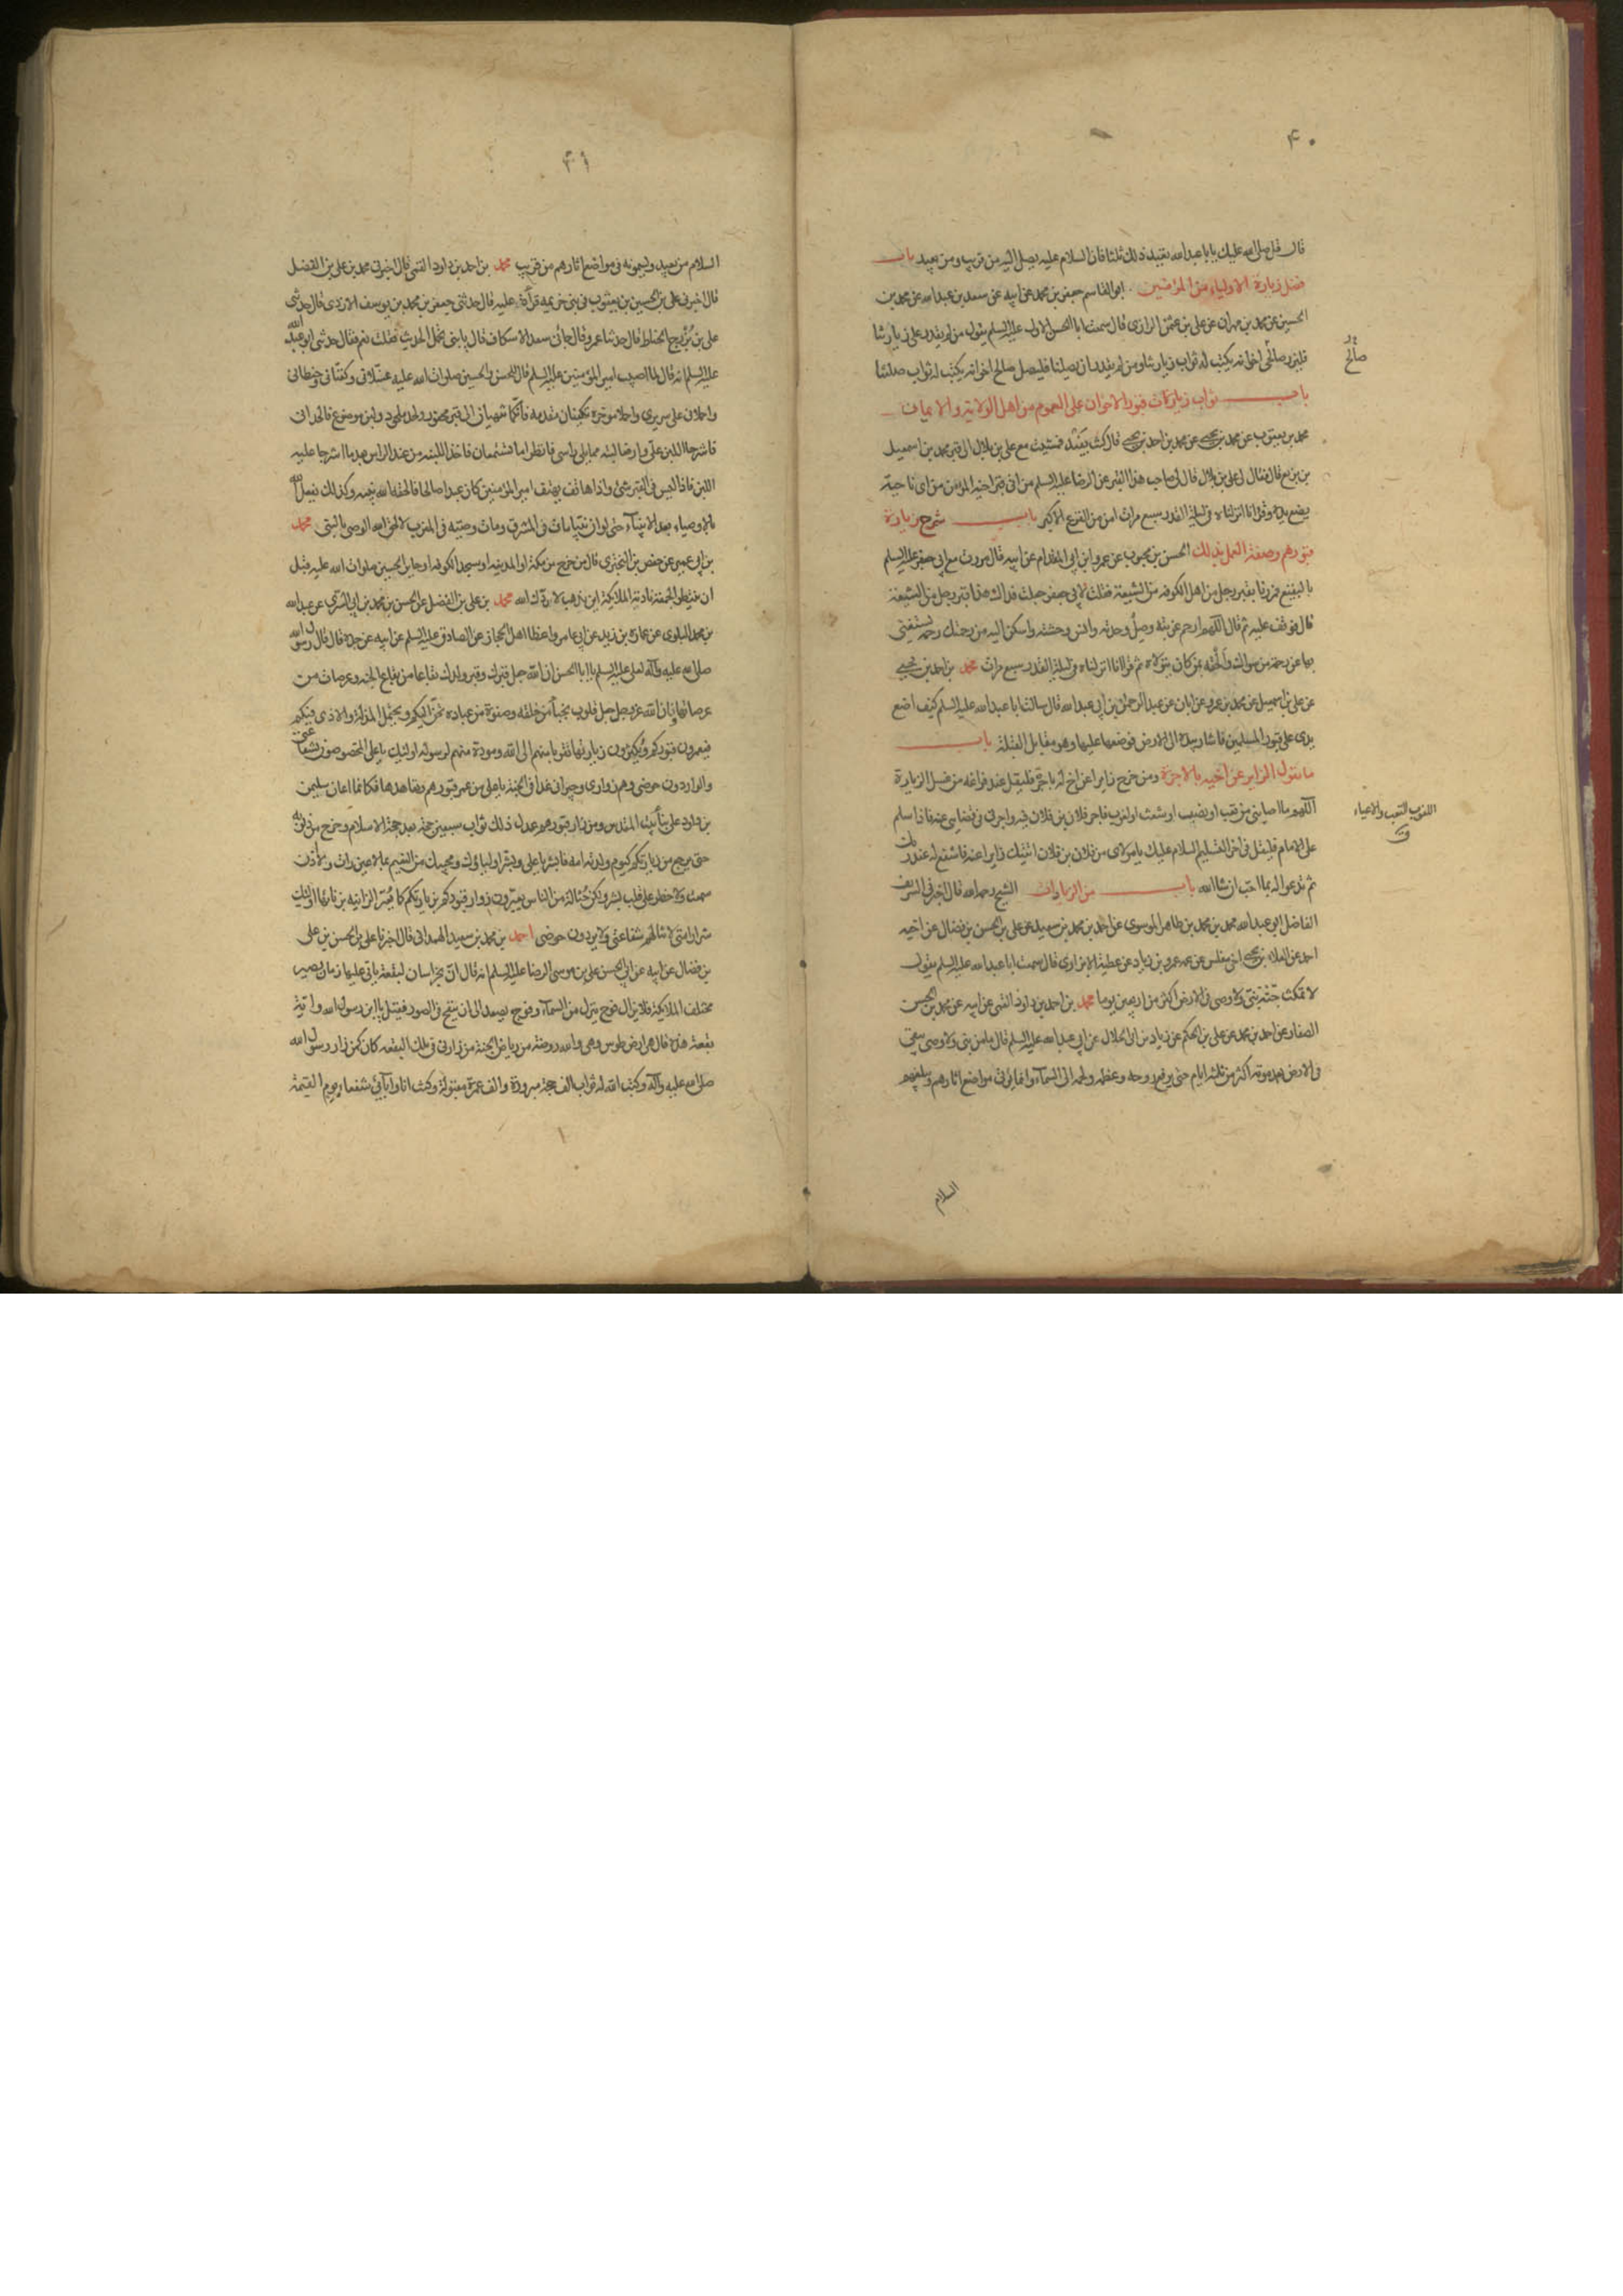 ۴۰
قال قل صلى الله عليك يا با عبدالله تعيد ذلك ثلثا فان السلام عليه يصل اليه من قريب ومن بعيد باب
فضل زيارة الاولياء من المؤمنين ابوالقاسم جعفر بن محمد عن ابيه عن سعد بن عبدالله عن محمد بن
الحسين عن محمد بن مهران عن على بن عثمن الرازى قال سمعت ابا الحسن الاول عليه السلم يقول من لم يقدر على زيارتنا
فليزر صالحى اخوانه يكتب له ثواب زيارتنا ومن لم يقدر ان يصلنا فليصل صالح اخوانه يكتب له ثواب صلتنا
صالح
باب ثواب زيارات قبور الاخوان على العموم من اهل الولاية والايمان
محمد بن يعقوب عن محمد بن يحيى عن محمد بن احمد بن يحيى قال كنت بفيد فمشيت مع على بن بلال الى قبر محمد بن اسمعيل
بن بزيع قال فقال لى على بن بلال قال لى صاحب هذا القبر عن الرضا عليه السلم من اتى قبر اخيه المؤمن من اى ناحية
يضع يده وقرا انا انزلناه فى ليلة القدر سبع مرات امن من الفزع الاكبر باب شرح زيارة
قبورهم وصفة العمل بذلك الحسن بن محبوب عن عمرو ابن ابى المقدام عن ابيه قال مررت مع ابى جعفر عليه السلم
بالبقيع فمررنا بقبر رجل من اهل الكوفه من الشيعة فقلت لابى جعفر جعلت فداك هذا قبر رجل من الشيعة
قال فوقف عليه ثم قال اللهم ارحم غربته وصل وحدته وانس وحشته واسكن اليه من رحمتك رحمة يستغنى
بها عن رحمة من سواك والحقه بمن كان يتولاه ثم قرا انا انزلناه فى ليلة القدر سبع مرات محمد بن احمد بن يحيى
عن على بن اسمعيل عن محمد بن عمرو عن ابان عن عبدالرحمن بن ابى عبدالله قال سالت ابا عبدالله عليه السلم كيف اضع
يدى على قبور المسلمين فاشار بيده الى الارض فوضعها عليها وهو مقابل القبلة باب
ما يقول الزاير عن اخيه بالاجرة ومن خرج زايرا عن اخ له باجر فليقل عند فراغه من غسل الزيارة
اللهم ما اصابنى من تعب او نصب او شعث او لغوب فاجر فلان بن فلان فيه واجرنى فى قضايى عنه فاذا سلم
اللغوب التعب والاعياء
على الامام فليقل فى اخر التسليم السلام عليك يا مولاى من فلان بن فلان اتيتك زايرا عنه فاشفع له عند ربك
ثم تدعو له بما احب ان شا الله باب من الزيادات الشيخ رحمه الله قال اخبرنى الشريف
الفاضل ابى عبدالله محمد بن محمد بن طاهر الموسوى عن احمد بن محمد بن سعيد عن على بن الحسن بن فضال عن اخيه
احمد عن العلاء بن يحيى اخى مغلس عن عمه عمرو بن زياد عن عطية الابزارى قال سمعت ابا عبدالله عليه السلم يقول
لا تمكث جثة نبى ولا وصى فى الارض اكثر من اربعين يوما محمد بن احمد بن داود القمى عن ابيه عن محمد بن الحسن
الصفار عن احمد بن محمد عن على بن الحكم عن زياد بن ابى الحلال عن ابى عبدالله عليه السلم قال ما من نبى ولا وصى يبقى
فى الارض بعد موته اكثر من ثلثه ايام حتى يرفع روحه وعظمه ولحمه الى السماء وانما يؤتى مواضع اثارهم ويبلغهم
السلام
۴۱
السلام من بعيد ويسمعونه فى مواضع اثارهم من قريب محمد بن احمد بن داود القمى قال اخبرنى محمد بن على بن الفضل
قال اخبرنى على بن الحسين بن يعقوب فى بنى خزيمه قراة عليه قال حدثنى جعفر بن محمد بن يوسف الازدى قال حدثنى
على بن بزرج الخياط قال حدثنا عمرو قال جائنى سعد الاسكاف فقال يا بنى تحمل الحديث فقلت نعم فقال حدثنى ابو عبدالله
عليه السلم انه قال لما اصيب امير المؤمنين عليه السلم قال للحسن والحسين صلوات الله عليه غسلانى وكفنانى وحنطانى
واحملانى على سريرى واحملا موخره تكفيان مقدمه فانكما تنتهيان الى قبر محفور ولحد ملحود ولبن موضوع فالحدانى
فاشرجا اللبن على وارفعا لبنة مما يلى راسى فانظرا ما تسمعان فاخذ اللبنه من عند الراس بعد ما اشرجا عليه
اللبن فاذا ليس فى القبر شئ واذا هاتف يهتف امير المؤمنين كان عبدا صالحا فالحقه الله بنبيه وكذلك يفعل الله
بالاوصياء بعد الانبياء حتى لو ان نبيا مات فى المشرق ومات وصيه فى المغرب لالحق الله الوصى بالنبى محمد
بن ابى عمير عن حفص بن البخترى قال من خرج من مكة او المدينه او مسجد الكوفه او حاير الحسين صلوات الله عليه قبل
ان ينتظر الجمعة نادته الملائكة اين تذهب لا ردك الله محمد بن على بن الفضل عن الحسن بن محمد بن ابى السرى عن عبدالله
بن محمد البلوى عن عمارة بن زيد عن ابى عامر واعظ اهل الحجاز عن الصادق عليه السلم عن ابيه عن جده قال قال رسول الله
صلى الله عليه وآله لعلى عليه السلم يا ابا الحسن ان الله جعل قبرك وقبر ولدك بقاعا من بقاع الجنه وعرصات من
عرصاتها وان الله عز وجل جعل قلوب نجباء من خلقه وصفوة من عباده تحن اليكم ويحتمل المذلة والاذى فيكم
فيعمرون قبوركم ويكثرون زيارتها تقربا منهم الى الله ومودة منهم لرسوله اولئك يا على المخصوصون بشفاعتى
والواردون حوضى وهم زوارى وجيرانى غدا فى الجنة يا على من عمر قبورهم وتعاهدها فكانما اعان سليمن
بن داود على بناء بيت المقدس ومن زار قبورهم عدل ذلك ثواب سبعين حجة بعد حجة الاسلام وخرج من ذنوبه
حتى يرجع من زيارتكم كيوم ولدته امه فابشر يا على وبشر اولياؤك ومحبيك من النعيم بما لا عين رات ولا اذن
سمعت ولا خطر على قلب بشر ولكن حثالة من الناس يعيرون زوار قبوركم بزيارتكم كما تعير الزانيه بزناها اولئك
شرار امتى لا انالهم شفاعتى ولا يردون حوضى احمد بن محمد بن سعيد الهمدانى قال اخبرنا على بن الحسن بن على
بن فضال عن ابيه عن ابى الحسن على بن موسى الرضا عليه السلم انه قال ان بخراسان لبقعة ياتى عليها زمان تصير
مختلف الملائكة فلا يزال فوج ينزل من السماء وفوج يصعد الى ان ينفخ فى الصور فقيل يا ابن رسول الله واية
بقعة هذه قال هى ارض طوس وهى والله روضة من رياض الجنة من زارنى فى تلك البقعه كان كمن زار رسول الله
صلى الله عليه وآله وكتب الله له ثواب الف حجة مبرورة والف عمرة مقبولة وكنت انا وابآئى شفعاءه يوم القيمة